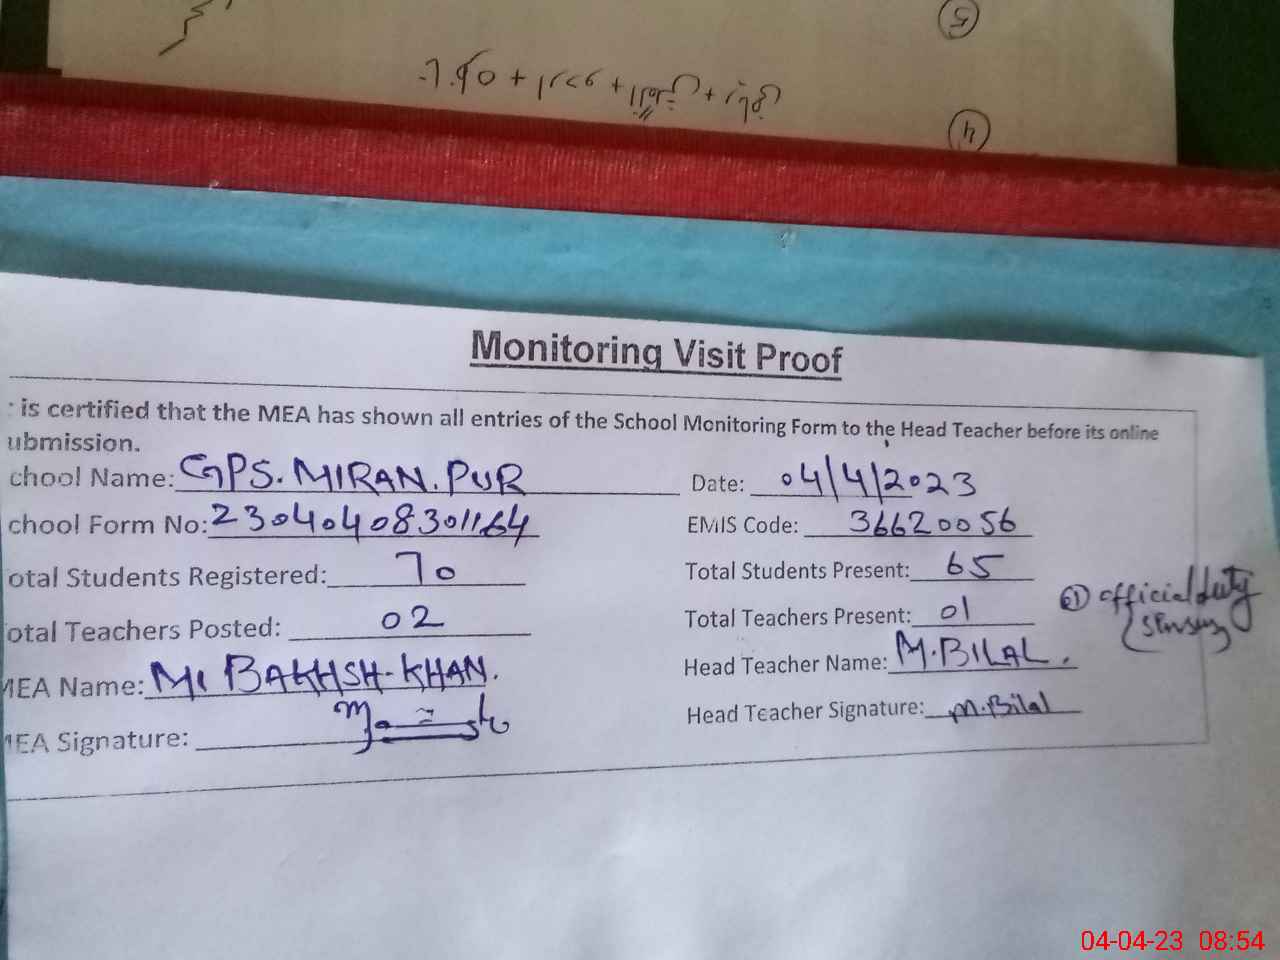 5
4
Monitoring Visit Proof
is certified that the MEA has shown all entries of the School Monitoring Form to the Head Teacher before its online
ubmission.
chool Name: GPS. MIRAN. PUR Date: 04/4/2023
chool Form No: 23040408301164 EMIS Code: 36620056
otal Students Registered: 70 Total Students Present: 65
otal Teachers Posted: 02 Total Teachers Present: 01 official duty
MEA Name: M. BAKHSH-KHAN. Head Teacher Name: M. BILAL.
MEA Signature: Head Teacher Signature: M. Bilal
04-04-23 08:54